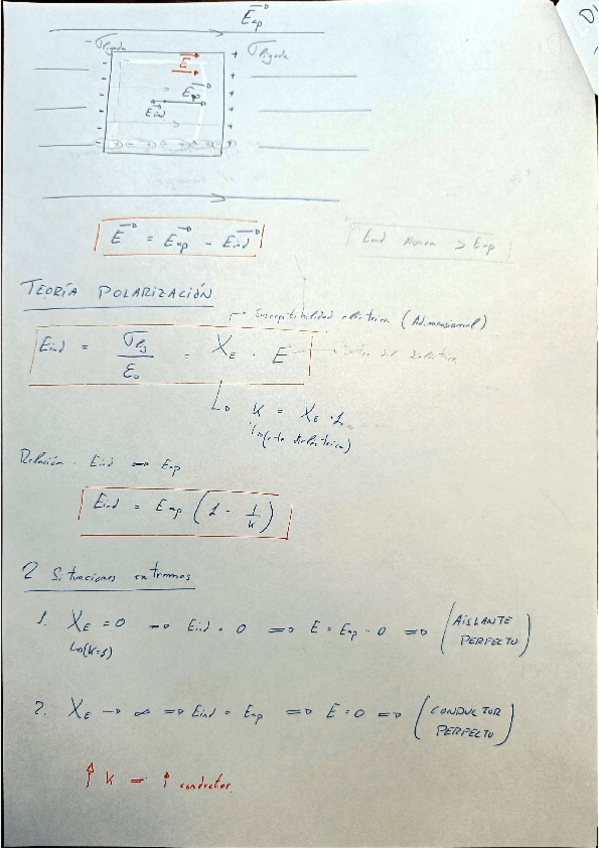 E⃗ap
-σligada
σligada
E⃗
E⃗ap
E⃗ind
E⃗ = E⃗ap - E⃗ind
Eind nunca > Eap
TEORÍA POLARIZACIÓN
Susceptibilidad eléctrica (Adimensional)
Eind = σlig / ε0 = XE · E → Dentro del dieléctrico
↳ K = XE + 1
↳ (cte dieléctrica)
Relación Eind ⇒ Eap
Eind = Eap (1 - 1/K)
2 Situaciones extremas
1. XE = 0 ⇒ Eind = 0 ⇒ E = Eap - 0 ⇒ (AISLANTE PERFECTO)
↳ (K=1)
2. XE → ∞ ⇒ Eind = Eap ⇒ E = 0 ⇒ (CONDUCTOR PERFECTO)
↑ K = ↑ conductor.